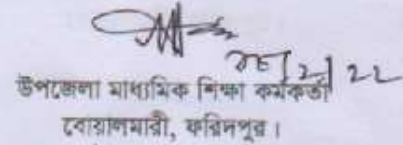 উপজেলা মাধ্যমিক শিক্ষা কর্মকর্তা
বোয়ালমারী, ফরিদপুর।